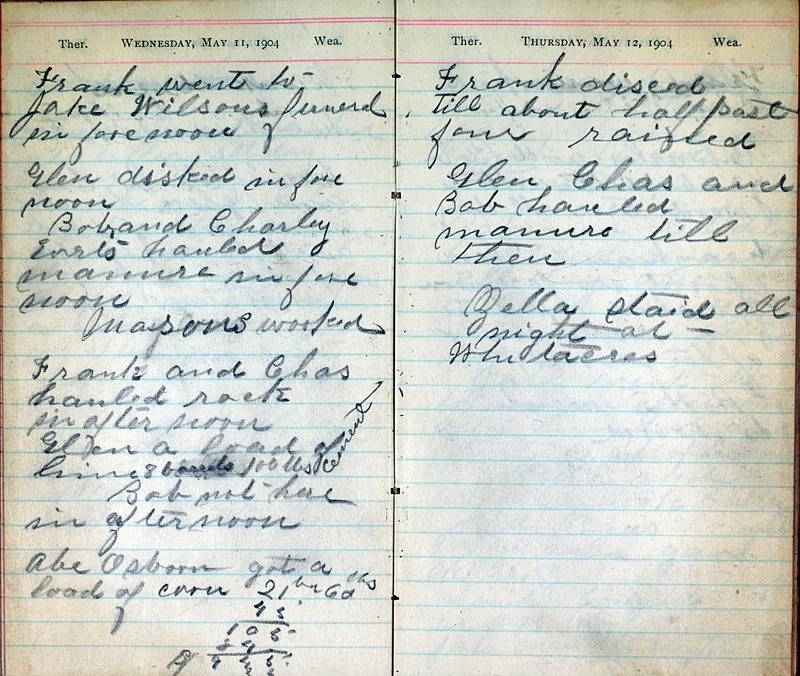 Ther. WEDNESDAY, MAY 11, 1904 Wea.
Frank went to
Jake Wilsons funeral
in fore noon
Glen disked in fore
noon
Bob and Charley
Evarts hauled
manure in fore
noon
Masons worked
Frank and Chas
hauled rock
in after noon
Glen a load of
lime 8 barrels 100 lbs cement
Bob not here
in after noon
Abe Osborn got a
load of corn 21 bu 60 lbs
45
105
84
Ther. THURSDAY, MAY 12, 1904 Wea.
Frank disced
till about half past
four rained
Glen Chas and
Bob hauled
manure till
then
Zella staid all
night at
Whitacres